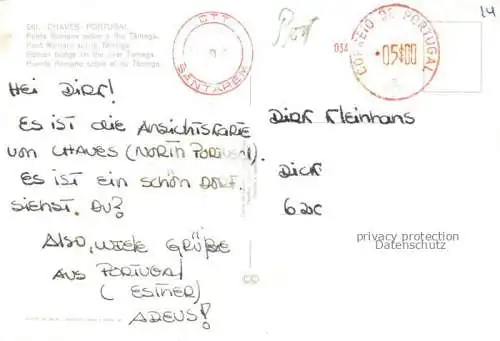 CHAVES PORTUGAL
Ponte Romana sobre o Rio Tâmega.
Pont Romain sur le Tâmega.
Roman bridge on the river Tâmega.
Puente Romano sobre el río Tâmega.
CTT
SANTARÉM
Port
034
CORREIO DE PORTUGAL
05$00
14
Hei Dirk!
Es ist die Ansichtskarte
von CHAVES (North Portugal).
Es ist ein schön Dorf.
siehst. Du?
Also, viele Grüße
aus Portugal
(Esther)
ADEUS!
Dirk Kleinhans
privacy protection
Datenschutz